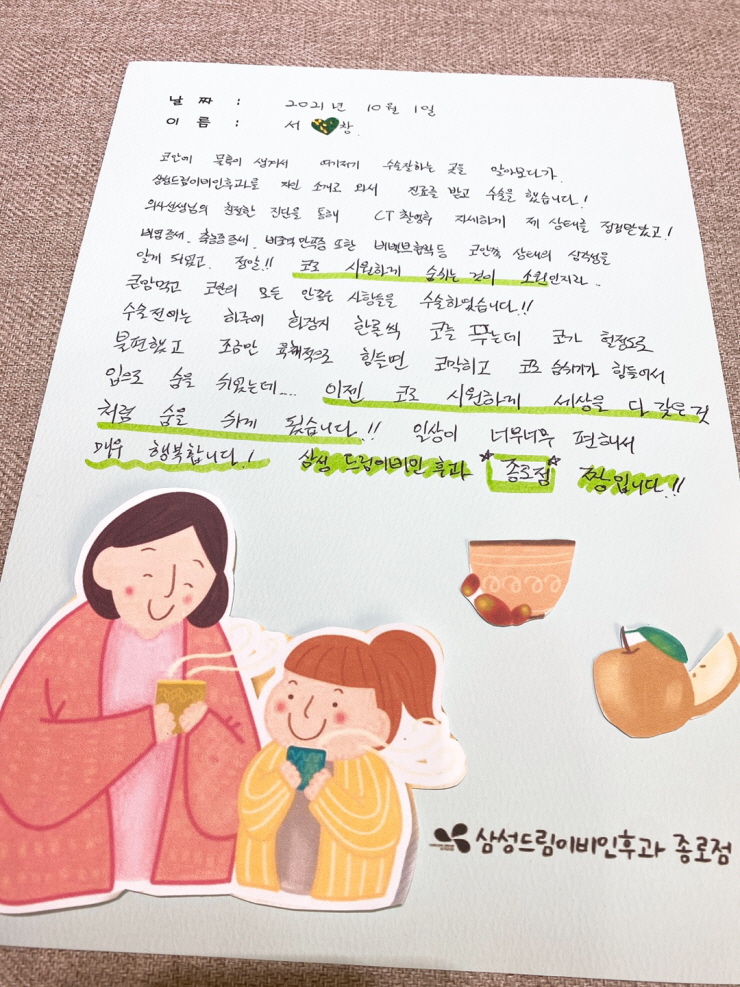 날 짜 : 2021년 10월 1일
이 름 : 서 창.
코안에 물혹이 생겨서 여기저기 수술잘하는 곳을 알아보다가.
삼성드림이비인후과를 지인 소개로 와서 진료를 받고 수술을 했습니다!
의사선생님의 친절한 진단을 통해 CT 촬영후 자세하게 제 상태를 점검받았고!
비염증세, 축농증증세, 비중격만곡증 또한 비밸브협착등 코안쪽 상태의 심각성을
알게 되었고. 정말!! 코로 시원하게 숨쉬는 것이 소원인지라..
큰맘먹고 코안의 모든 안좋은 사항들을 수술하였습니다!!
수술전에는 하루에 휴지 한롤씩 코를 푸는데 코가 헐정도로
불편했고 조금만 육체적으로 힘들면 코막히고 코로 숨쉬기가 힘들어서
입으로 숨을 쉬었는데.... 이젠 코로 시원하게 세상을 다 갖은것
처럼 숨을 쉬게 됐습니다!! 일상이 너무너무 편해서
매우 행복합니다! 삼성 드림이비인후과 종로점 짱입니다!!
삼성드림이비인후과 종로점